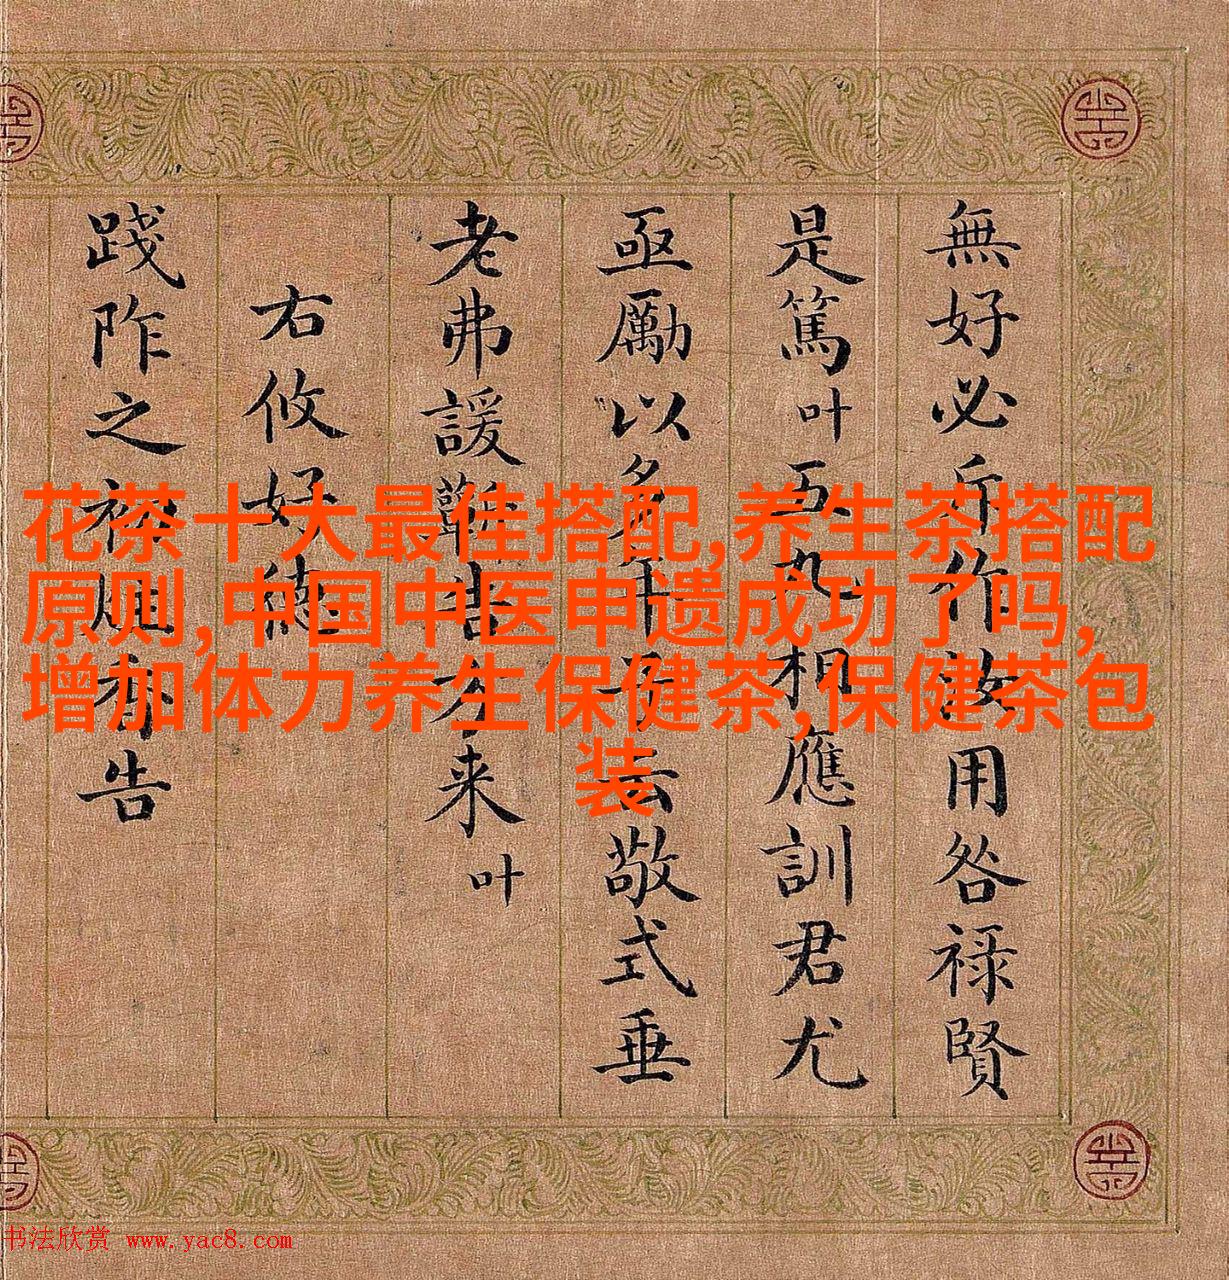 無好必斥作汝用咎禄賢
是篤叶五九相應訓君尤
亟勵以多年敬式垂
老弗諼告来叶
右攸好德
踐阼之初則告
花茶十大最佳搭配,养生茶搭配
原则,中国中医申遗成功了吗,
增加体力养生保健茶,保健茶包
装
书法欣赏 www.yac8.com